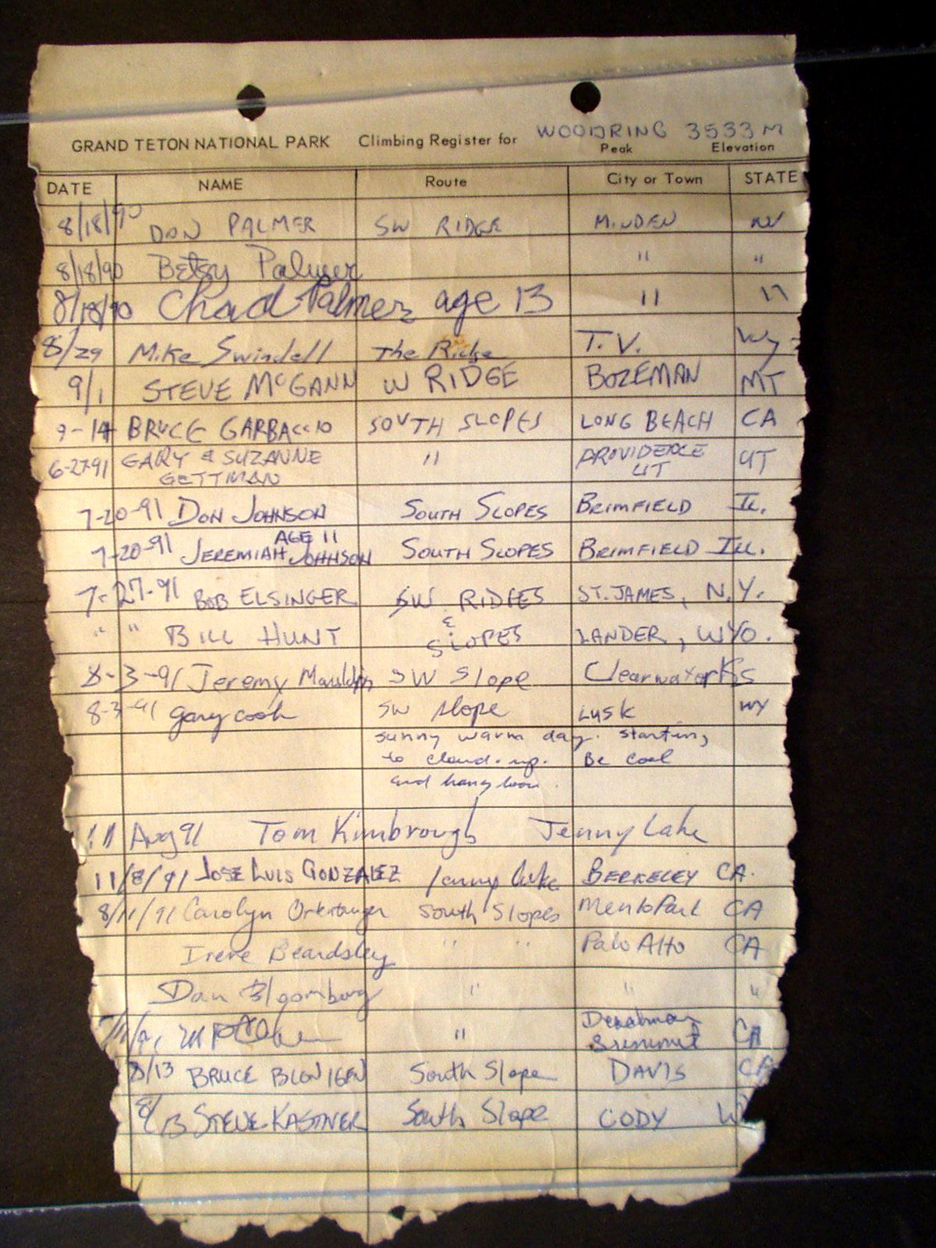 GRAND TETON NATIONAL PARK Climbing Register for WOODRING 3533 M
Peak Elevation
DATE NAME Route City or Town STATE
8/18/90 DON PALMER SW RIDGE MINDEN NV
8/18/90 Betsy Palmer " "
8/18/90 Chad Palmer age 13 " "
8/29 Mike Swindell The Ridge T.V. Wy
9/1 STEVE McGANN W RIDGE BOZEMAN MT
9-14 BRUCE GARBACCIO SOUTH SLOPES LONG BEACH CA
6-27-91 GARY & SUZANNE GETTMAN " PROVIDENCE UT UT
7-20-91 DON JOHNSON SOUTH SLOPES BRIMFIELD IL.
AGE 11
7-20-91 JEREMIAH JOHNSON SOUTH SLOPES BRIMFIELD ILL.
7-27-91 BOB ELSINGER SW RIDGES ST. JAMES, N.Y.
&
" " BILL HUNT SLOPES LANDER, WYO.
8-3-91 Jeremy Mauldin SW Slope Clearwater Ks
8-3-91 gary cook SW slope Lusk WY
sunny warm day. starting
to cloud-up. Be cool
and hang loose.
11 Aug 91 Tom Kimbrough Jenny Lake
11/8/91 JOSE LUIS GONZALEZ Jenny Lake BERKELEY CA.
8/11/91 Carolyn South Slopes Menlo Park CA
Irene Beardsley " " Palo Alto CA
Dan Blomburg " " "
" Deadman Summit CA
8/13 BRUCE BLONIGEN South Slope DAVIS CA
8/13 STEVE KASTNER South Slope CODY